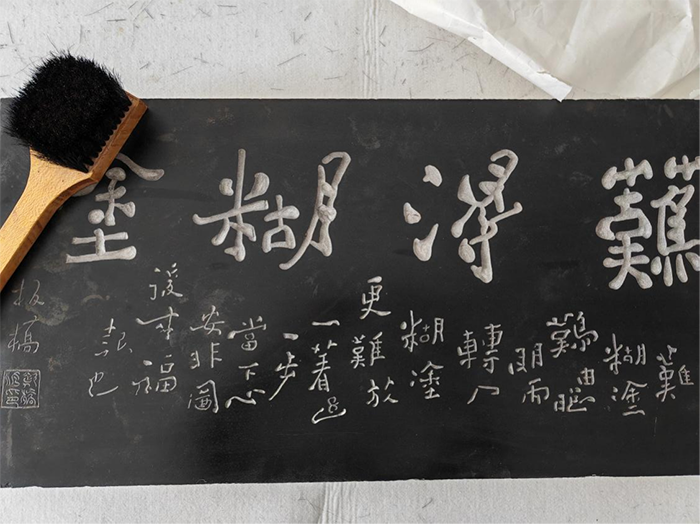 難得糊塗
難
糊塗
難由聰
明而
轉入
糊塗
更難放
一著退
一步
當下心
安非圖
後來福
報也
板橋